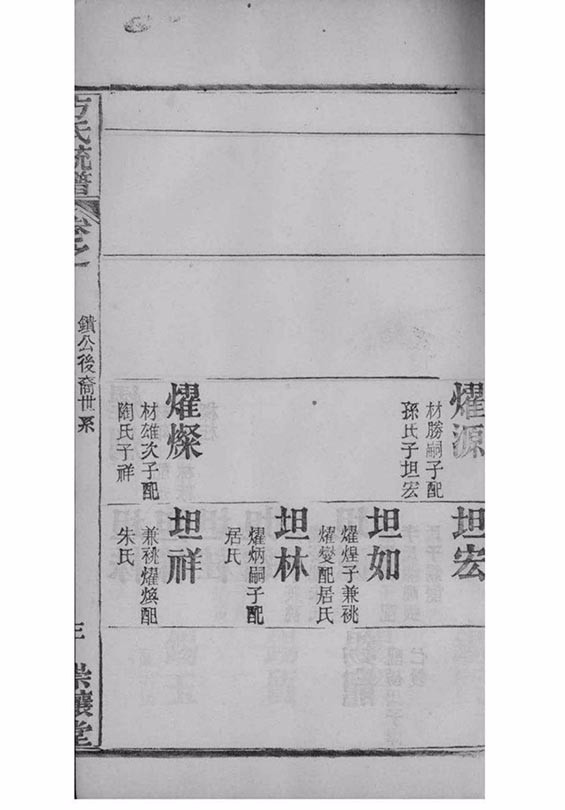 燿源
材勝嗣子配
孫氏子坦宏
燿燦
材雄次子配
陶氏子祥
坦宏
坦如
燿煋子兼祧
燿燮配居氏
坦林
燿炳嗣子配
居氏
坦祥
兼祧燿煥配
朱氏
方氏統譜
卷之
鐀公後裔世系
三
崇讓堂